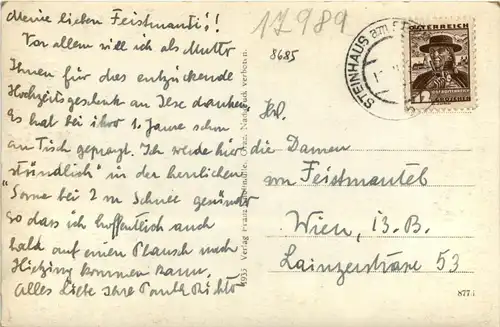 Meine lieben Feistmantl's!
Vor allem will ich als Mutter
Ihnen für das entzückende
Hochzeitsgeschenk an Ilse danken.
Es hat bei ihrer 1. Jause schon
am Tisch geprangt. Ich werde hier
"stündlich" in der herrlichen
Sonne bei 2 m Schnee gesünder
so dass ich hoffentlich auch
bald auf einen Plausch nach
Hietzing kommen kann.
Alles Liebe Ihre
17989
8685
STEINHAUS am
ÖSTERREICH
12
1935 Verlag Franz Graz. Nachdruck verboten.
An die Damen
von Feistmantel
Wien, 13. B.
Lainzerstraße 53
8773